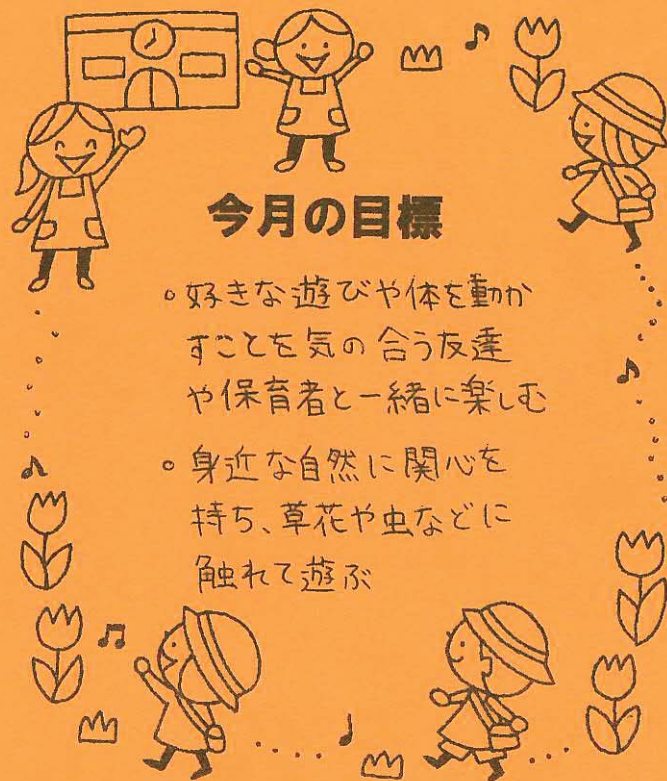 今月の目標
。好きな遊びや体を動か
すことを気の合う友達
や保育者と一緒に楽しむ
。身近な自然に関心を
持ち、草花や虫などに
触れて遊ぶ